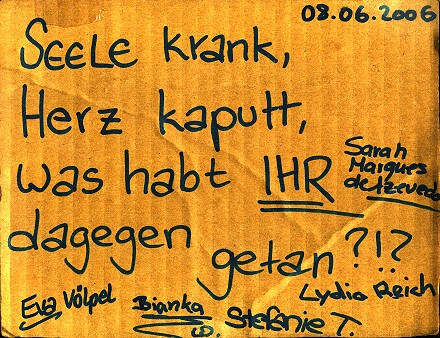 08.06.2006
SEELE krank,
Herz kaputt,
was habt IHR
dagegen
getan ?!?
Sarah
Marques
de Azevedo
Eva Völpel
Bianka
S. Stefenie T.
Lydia Reich